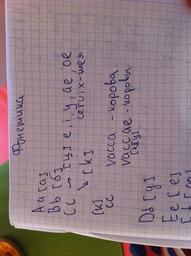 Фонетика
Aa [a]
Bb [б]
Cc → [ц] e, i, y, ae, oe
cervix - шея
↘ [k]
[k] vacca - корова
cc vaccae - коровы
[кц]
Dd [д]
Ee [e]